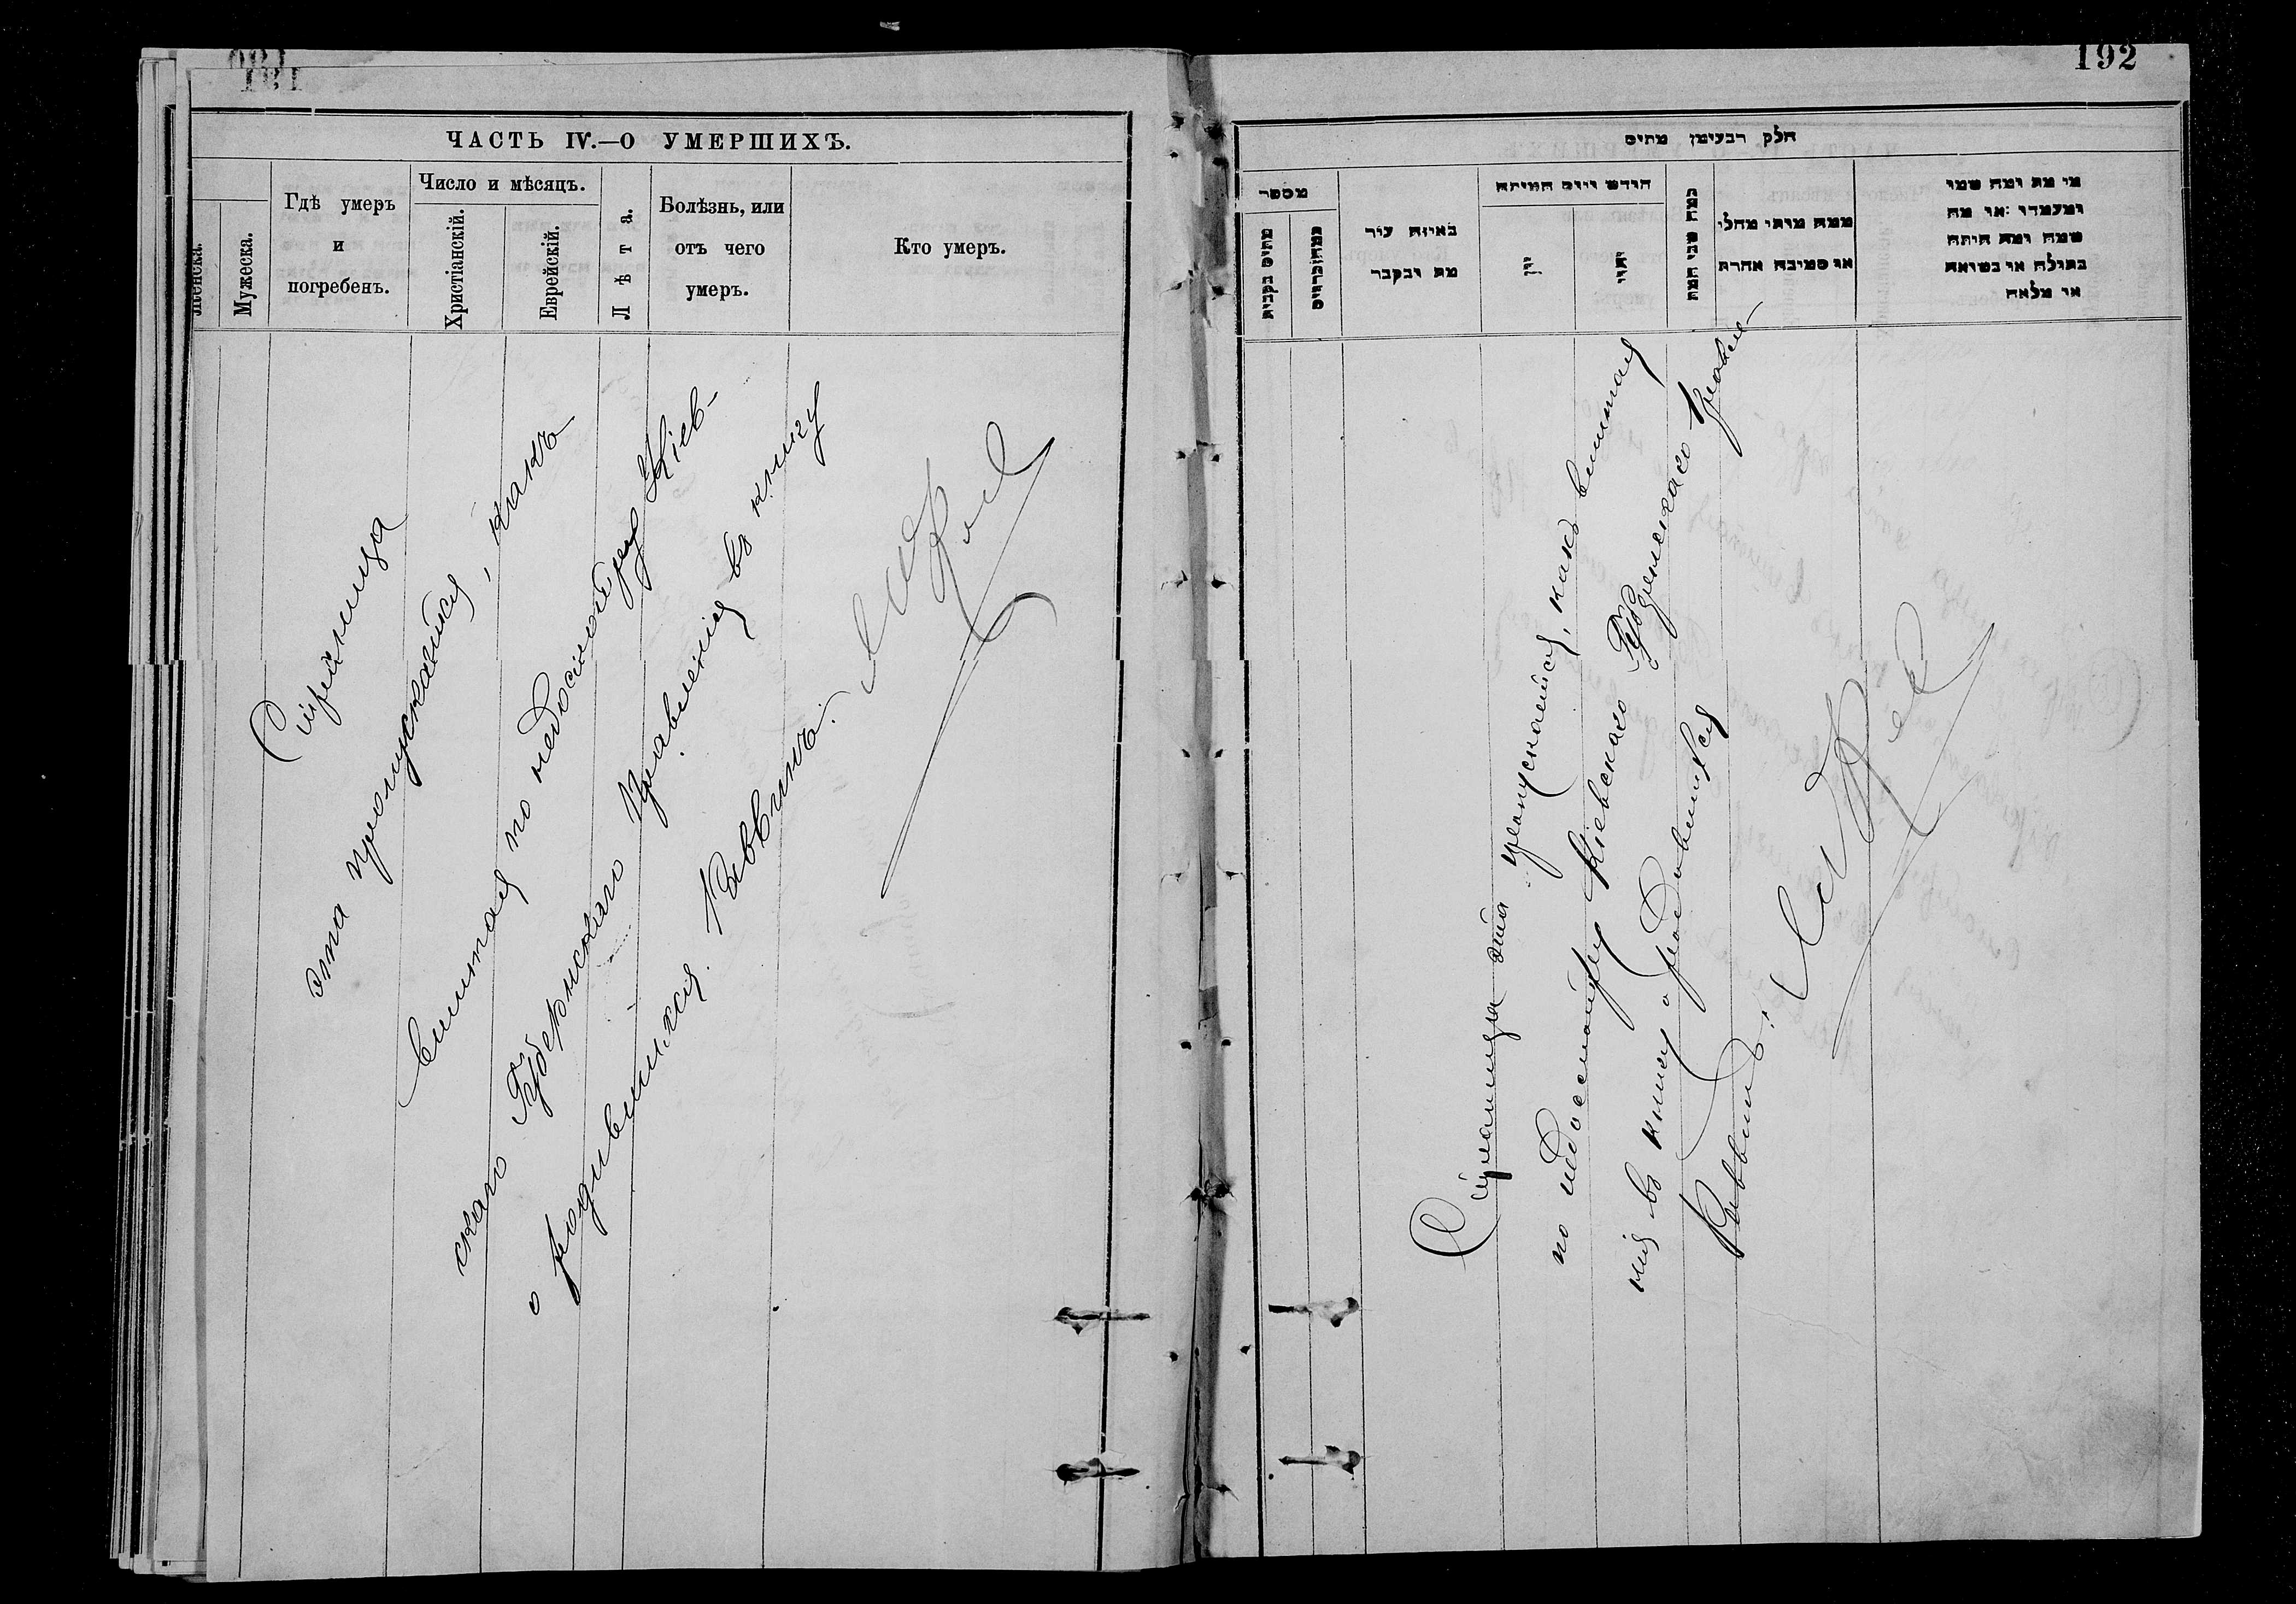 192
ЧАСТЬ IV.—О УМЕРШИХЪ.
Женска.
Мужеска.
Гдѣ умеръ
и
погребенъ.
Число и мѣсяцъ.
Христіанскій.
Еврейскій.
Лѣта.
Болѣзнь, или
отъ чего
умеръ.
Кто умеръ.
Страница
эта пропускается, какъ
вшитая по недосмотру Кіев-
скаго Губернскаго Правленія въ книгу
о родившихся. Раввинъ:
חלק רבעימן מתים
מספר
באיזה עיר
מת ונקבר
חודש ויום המיתה
כמה שני חמה
ממה מותי מחלי
או סמיבה אחרת
מי מת ומה שמו
ומעמדו :או מה
שמה ומה היתה
בתולה או נשואה
או מלאה
Страница эта пропускается, какъ вшитая
по недосмотру Кіевскаго Губернскаго Правле-
нія въ книгу о родившихся
Раввинъ: